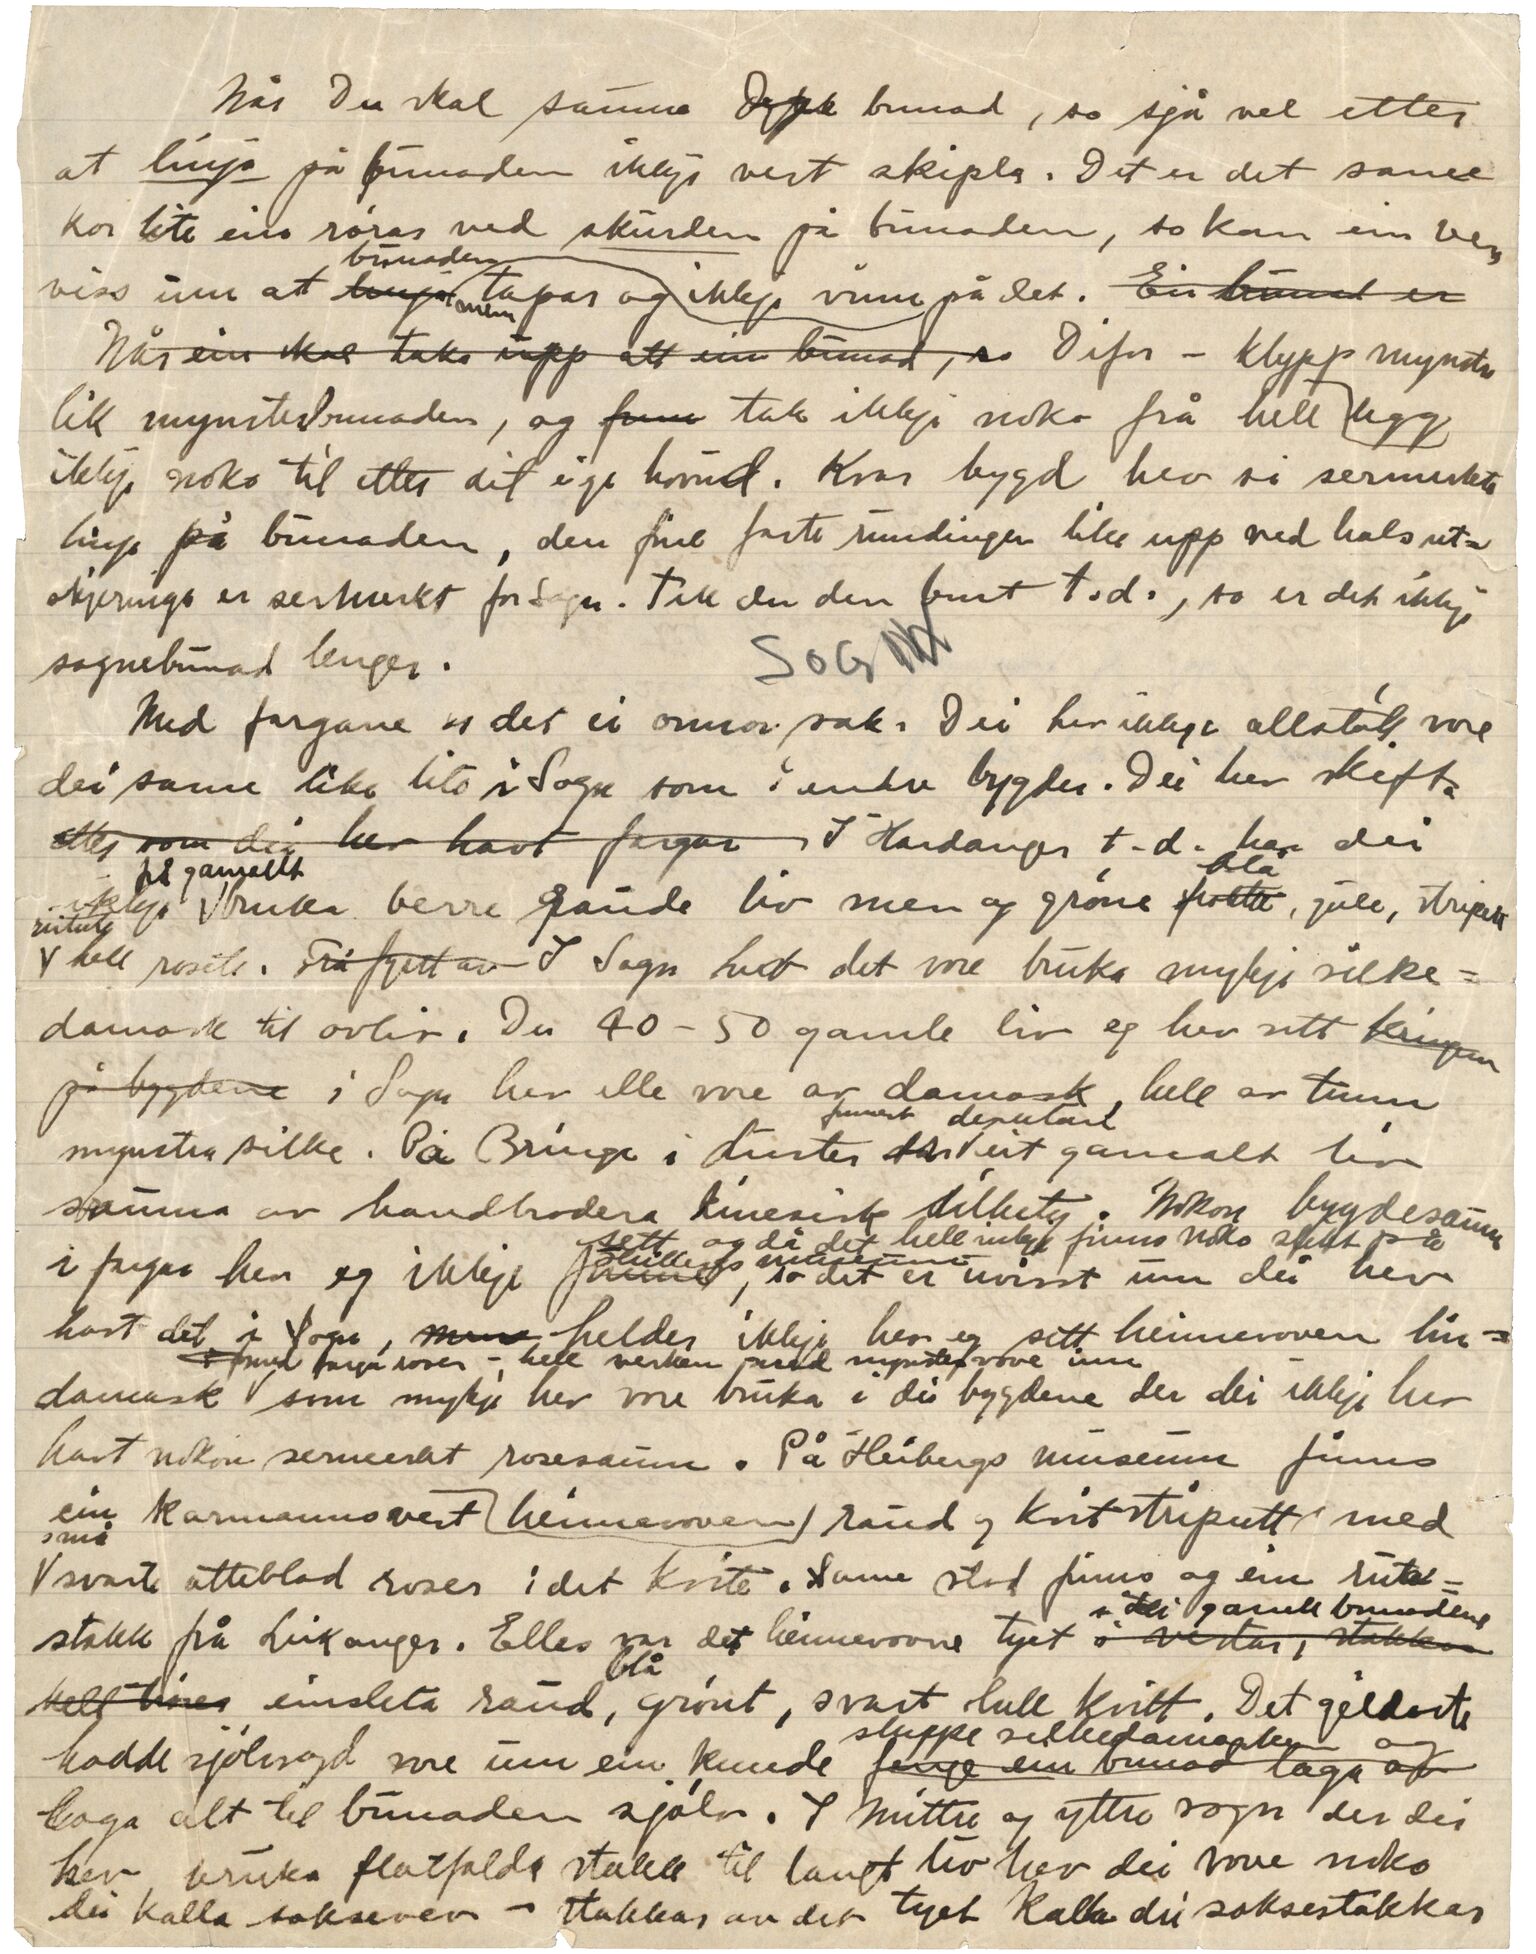 Når Du skal sauma Dykk bunad, so sjå vel etter
at linja på bunaden ikkje vert skipla. Det er det same
kor lite ein rørar ved skurden på bunaden, so kan ein vera
viss um at linja bunaden tapar og ikkje vinn på det. Ein bunad er
Når ein skal taka upp att ein bunad, so Difor – klypp mynstr
lik mynsterbunaden, og tak ikkje noko frå hell legg
ikkje noko til etter dit eige hovud. Kvar bygd hev si sermerkte
linje på bunaden, den fine faste rundingen like upp ved halsut=
skjeringa er sermerkt for Sogn. Tek du den burt t.d., so er det ikkje
sognebunad lenger.
SOGN
Med fargane er det ei onnor sak. Dei hev ikkje allstøtt vore
dei same like lite i Sogn som i andre bygder. Dei hev skifta
etter som dei hev havt fargar I Hardanger t.d. har dei
frå gamallt
ikkje bruka berre raude liv men og grøne blå, gule, stripete
rutute
hell rosete. I Sogn hev det vore bruka mykje silke=
damask til ovliv. Du 40–50 gamle liv eg hev sett kringum
på bygdene i Sogn hev alle vore av damask, hell av tunn
mynstra silke. På Bringe i Luster finnest dessutan eit gamalt liv
sauma av handbrodera kinesisk silkety. Nokon bygdesaum
i fargar hev eg ikkje sett og då det hell ikkje finns noko slikt på
Heibergs museum, so det er uvisst um dei hev
havt det i Sogn, men helder ikkje hev eg sett heimevoven lin=
med farga roser – hell verken med mynster vove inn
damask som mykje hev vore bruka i dei bygdene der dei ikkje hev
havt nokon sermerkt rosesaum. På Heibergs museum finns
ein karmannsvest (heimevoven) raud og kvit striputt med
små
svarte åtteblad roser i det kvite. Same stad finns og ein rute=
stakk frå Leikanger. Elles var det heimevovne tyet i dei gamle bunadene
i vestar, stakkar
hell liver einsleta raud, blå, grønt, svart hell kvitt. Det gildaste
hadde sjølvsagd vore um ein kunde sleppe silkedamasken og
fenge ein bunad laga av
laga alt til bunaden sjølv. I Mittre og yttre sogn der dei
hev bruka flatfalda stakk til langt liv hev dei vove noko
dei kalla saksevev – stakkar av det tyet kalla dei saksestakkar